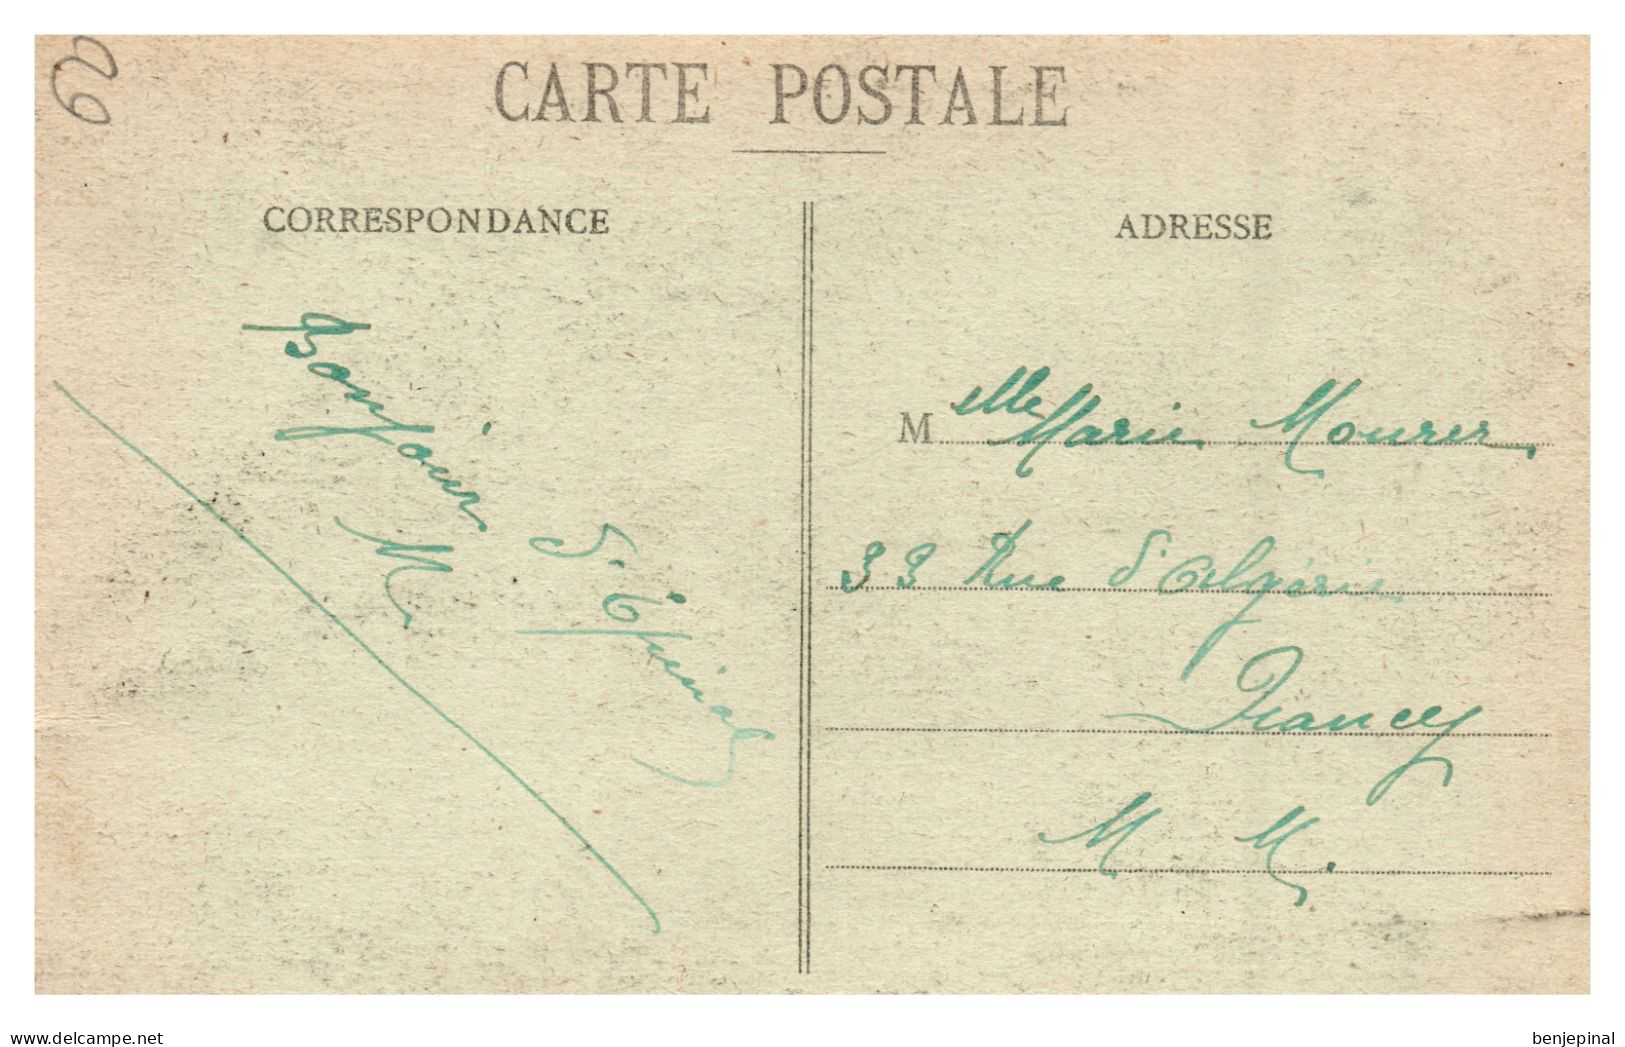 29
CARTE POSTALE
CORRESPONDANCE
ADRESSE
Bonjour
d'Épinal
M
M elle Marie Mourer
33 Rue d'Algérie
Nancy
M. M.
www.delcampe.net
benjepinal